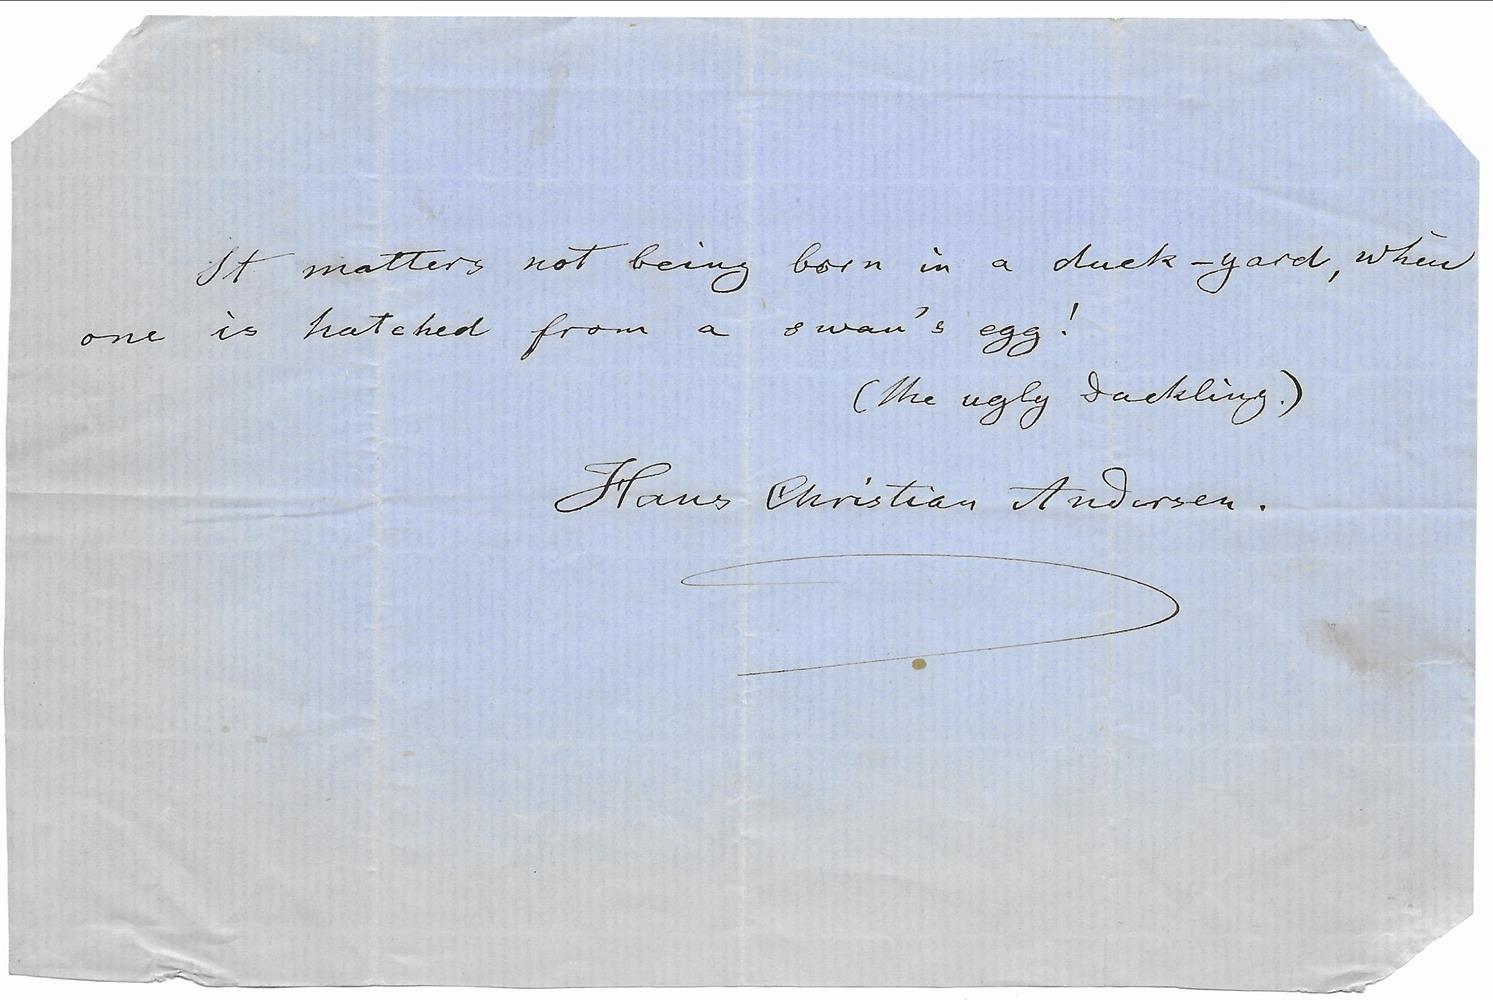 It matters not being born in a duck-yard, when
one is hatched from a swan's egg!
(the ugly Duckling.)
Hans Christian Andersen.